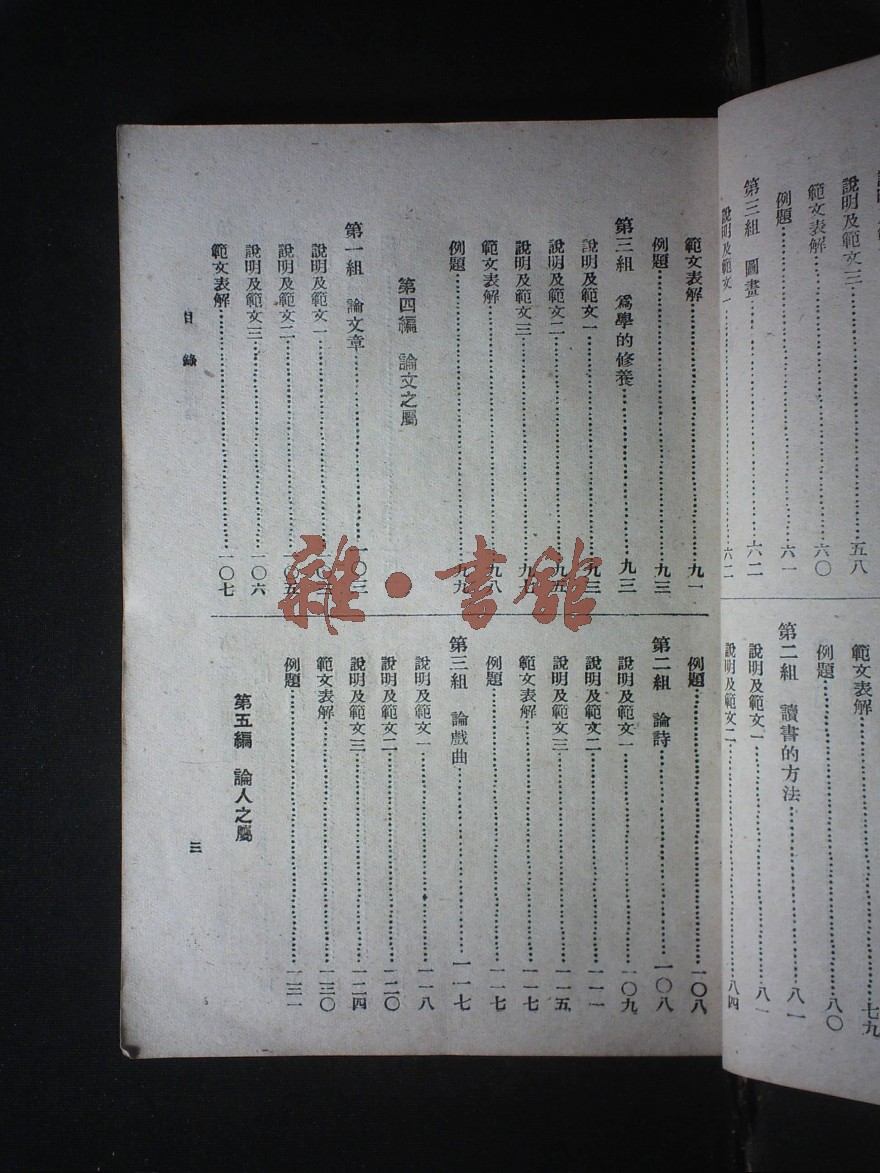 說明及範文三……五八
範文表解……六〇
例題……六一
第三組 圖畫……六二
說明及範文一……六二
範文表解……七九
例題……八〇
第二組 讀書的方法……八一
說明及範文一……八一
說明及範文二……八四
範文表解……九一
例題……九三
第三組 爲學的修養……九三
說明及範文一……九三
說明及範文二……九五
說明及範文三……九七
範文表解……九八
例題……九九
第四編 論文之屬
第一組 論文章……一〇三
說明及範文一……一〇三
說明及範文二……一〇五
說明及範文三……一〇六
範文表解……一〇七
例題……一〇八
第二組 論詩……一〇八
說明及範文一……一〇九
說明及範文二……一一一
說明及範文三……一一五
範文表解……一一七
例題……一一七
第三組 論戲曲……一一七
說明及範文一……一一八
說明及範文二……一二〇
說明及範文三……一二四
範文表解……一三〇
例題……一三一
第五編 論人之屬
目錄
三
雜·書館